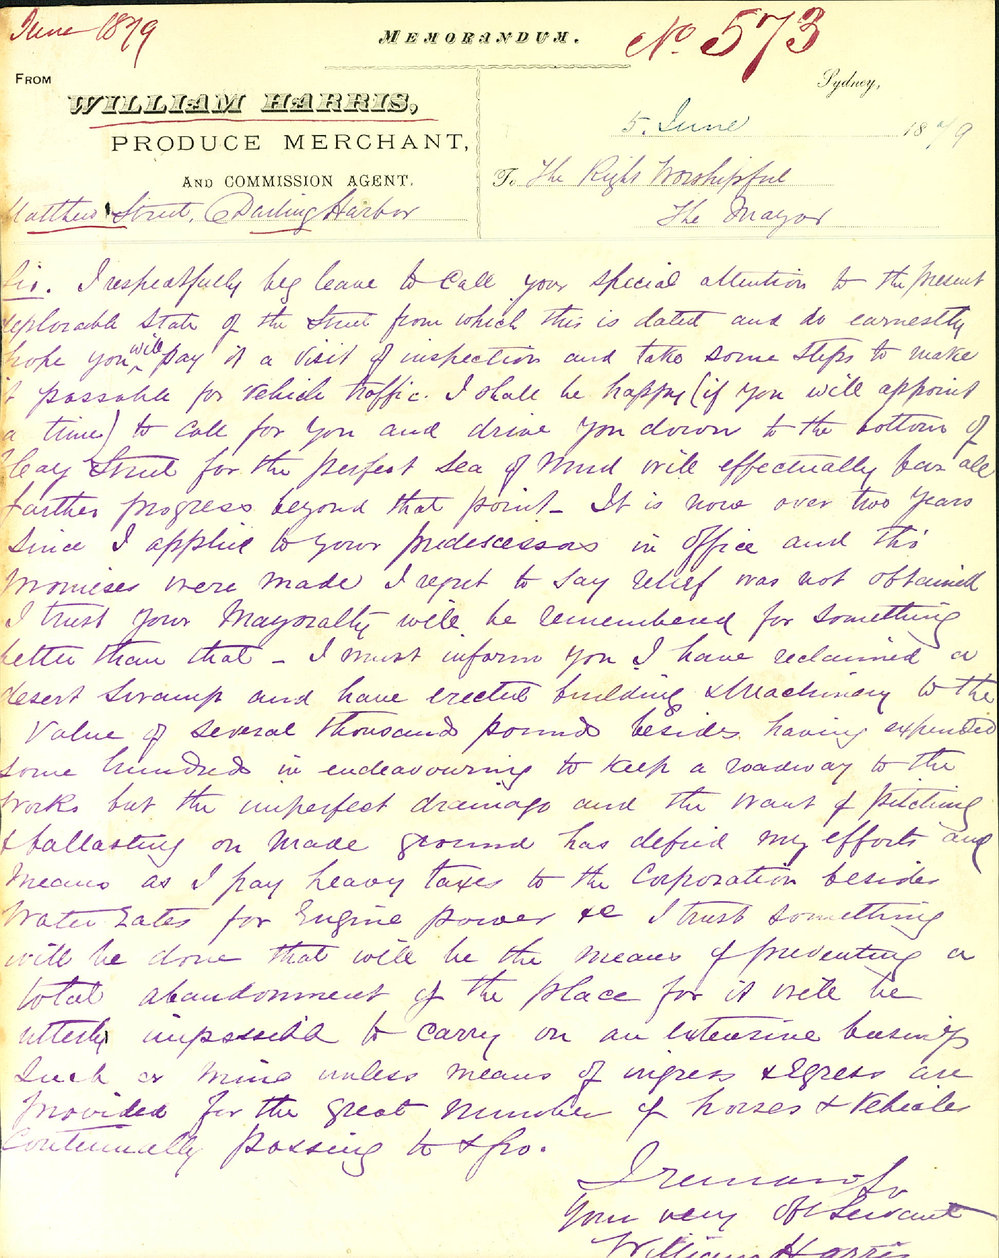 June 1879
MEMORANDUM.
No 573
FROM
WILLIAM HARRIS,
PRODUCE MERCHANT,
AND COMMISSION AGENT.
Matthew Street, Darling Harbor
Sydney,
5. June 1879
To The Right Worshipful
The Mayor
Sir. I respectfully beg leave to call your special attention to the present
deplorable state of the street from which this is dated and do earnestly
hope you will pay it a visit of inspection and take some steps to make
it passable for vehicle traffic. I shall be happy (if you will appoint
a time) to call for you and drive you down to the bottom of
Hay Street for the perfect sea of mud will effectually bar all
further progress beyond that point - It is now over two years
since I applied to your predescessors in office and tho
promises were made I regret to say relief was not obtained
I trust your Mayoralty will be remembered for something
better than that - I must inform you I have reclaimed a
desert swamp and have erected building & Machinery to the
value of several thousand pounds besides having expended
some hundreds in endeavouring to keep a roadway to the
works but the imperfect drainage and the want of pitching
& ballasting on made ground has defied my efforts and
means as I pay heavy taxes to the Corporation besides
Water Rates for Engine power &c I trust something
will be done that will be the means of preventing a
total abandonment of the place for it will be
utterly impossible to carry on an extensive business
such as mine unless means of ingress & Egress are
provided for the great number of horses & Vehicles
continually passing to & fro.
I remain Sir
Your very Obt Servant
William Harris